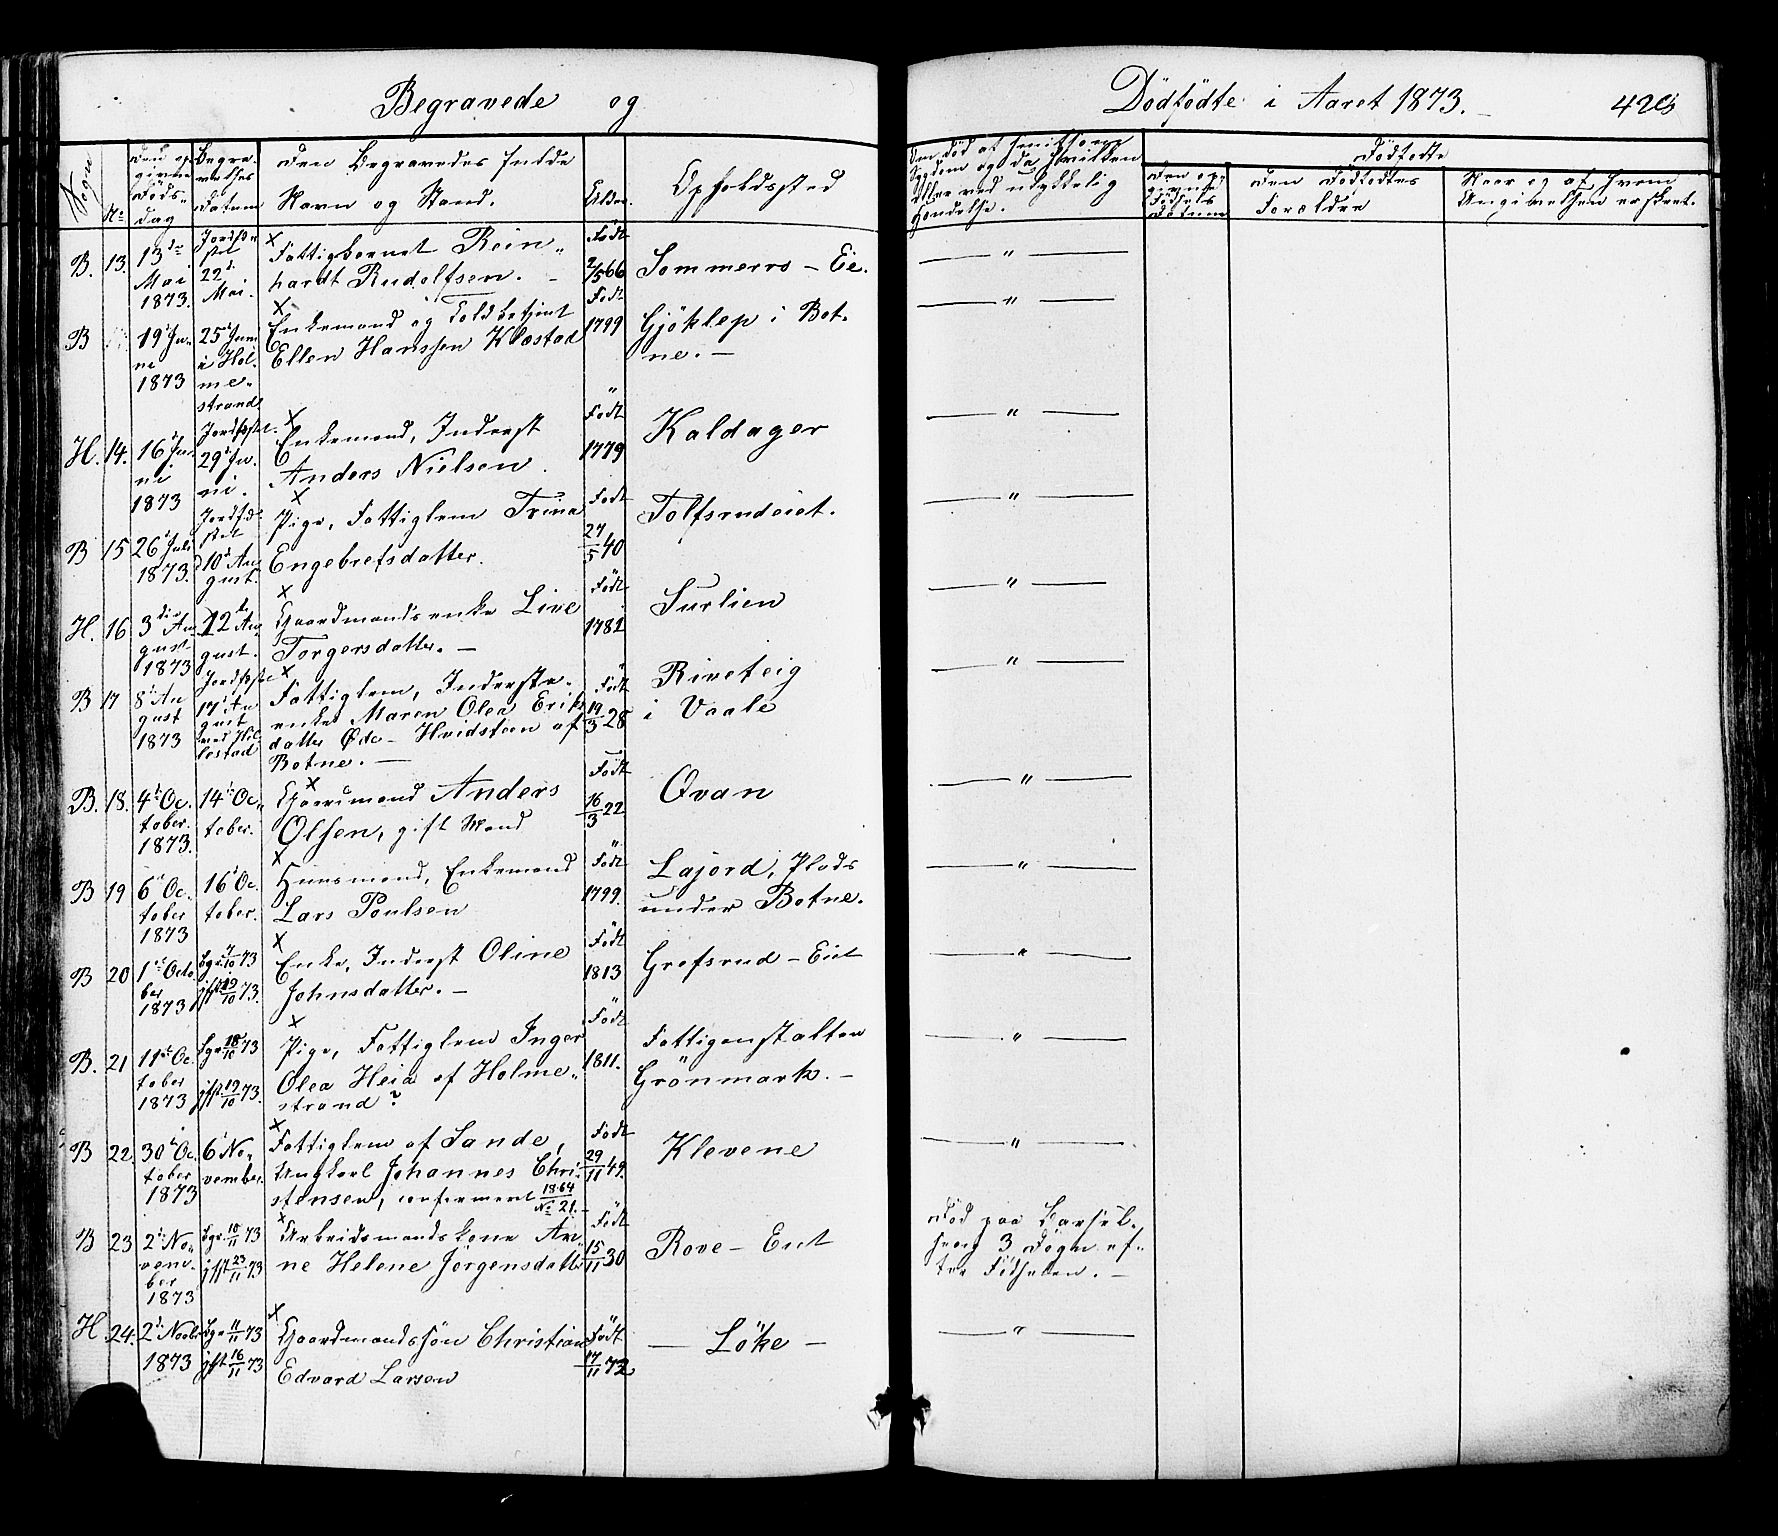 Begravede og
Dödfödte i Aaret 1873.
Sogn
No
Den op-
givne
Döds-
dag
Begra-
velses
Datum
Den Begravedes fulde
Navn og Stand.
Alder.
Opholdssted
Om död af smitsom
Sygdom og da hvilken
eller ved ulykkelig
Hendelse.
Dödfödte
Den op-
givne
Födsels
Datum
Den Dödfödtes
Forældre
Naar og af hvem
Angivelsen er skeet.
B. 13. 13de Mai 1873. Jordfæstet 22d Mai. × Fattigbarnet Reinhardt Rudolfsen. – Födt 2/5 66 Sommerro – Eie. — " —
B 19d Juni 1873 25d Juni i Holmestrand × Enkemand og Toldbetjent Ellen Hanssen Klæstad Födt 1799 Gjöklep i Botne. — — " —
H. 14. 16d Juni 1873 Jordfæstet 29d Juni. × Enkemand, Inderst Anders Nielsen. Födt 1779 Kaldager — " —
B 15 26d Juli 1873. Jordfæstet 10d August. × Pige, Fattiglem Trina Engebretsdatter. Födt 27/5 40 Tolfsrudeiet. — " —
H. 16 3die August 1873 12d August. × Gaardmandsenke Live Torgersdatter. — Födt 1781 Surlien — " —
B 17 8d August 1873 Jordfæstet 17d August ved Hillestad × Fattiglem, Inderstenke Maren Olea Eriksdatter Øde-Hvidsteen af Botne. — Födt 19/3 28 Riveteig i Vaale — " —
B. 18. 4d October. 1873. 14d October. × Gaardmand Anders Olsen, gift Mand Födt 16/3 22 Ovan — " —
B 19 6d October 1873 16d October. × Huusmand, Enkemand Lars Poulsen Födt 1799. Lajord, Plads under Botne. — " —
B 20 1ste October 1873 bgr. 7/10 73 jfst 19/10 73. × Enke, Inderst Oline Johnsdatter. — Födt 1813 Grefsrud – Eiet — " —
B. 21 11te October 1873 bgr 18/10 73 jfst 19/10 73. × Pige, Fattiglem Inger Olea Heia af Holmestrand? Födt 1811. Fattiganstalten Grönmark. — — " —
B 22. 30d October 1873 6d November. × Fattiglem af Sande, Ungkarl Johannes Christensen, confirmeret 1864 No 21. – Födt 29/11 49. Klevene — " —
B 23 2d November 1873 bgr. 10/11 73 jfst 23/11 73 × Arbeidsmandskone Anne Helene Jörgensdatter Födt 15/11 30 Rove – Eiet Död paa Barselseng 3 Dögn efter Födselen. —
H 24. 2d Novbr 1873 bgr 11/11 73 jfst 16/11 73 × Gaardmandssön Christian Edvard Larsen Födt 17/11 72 — Löke — — " —